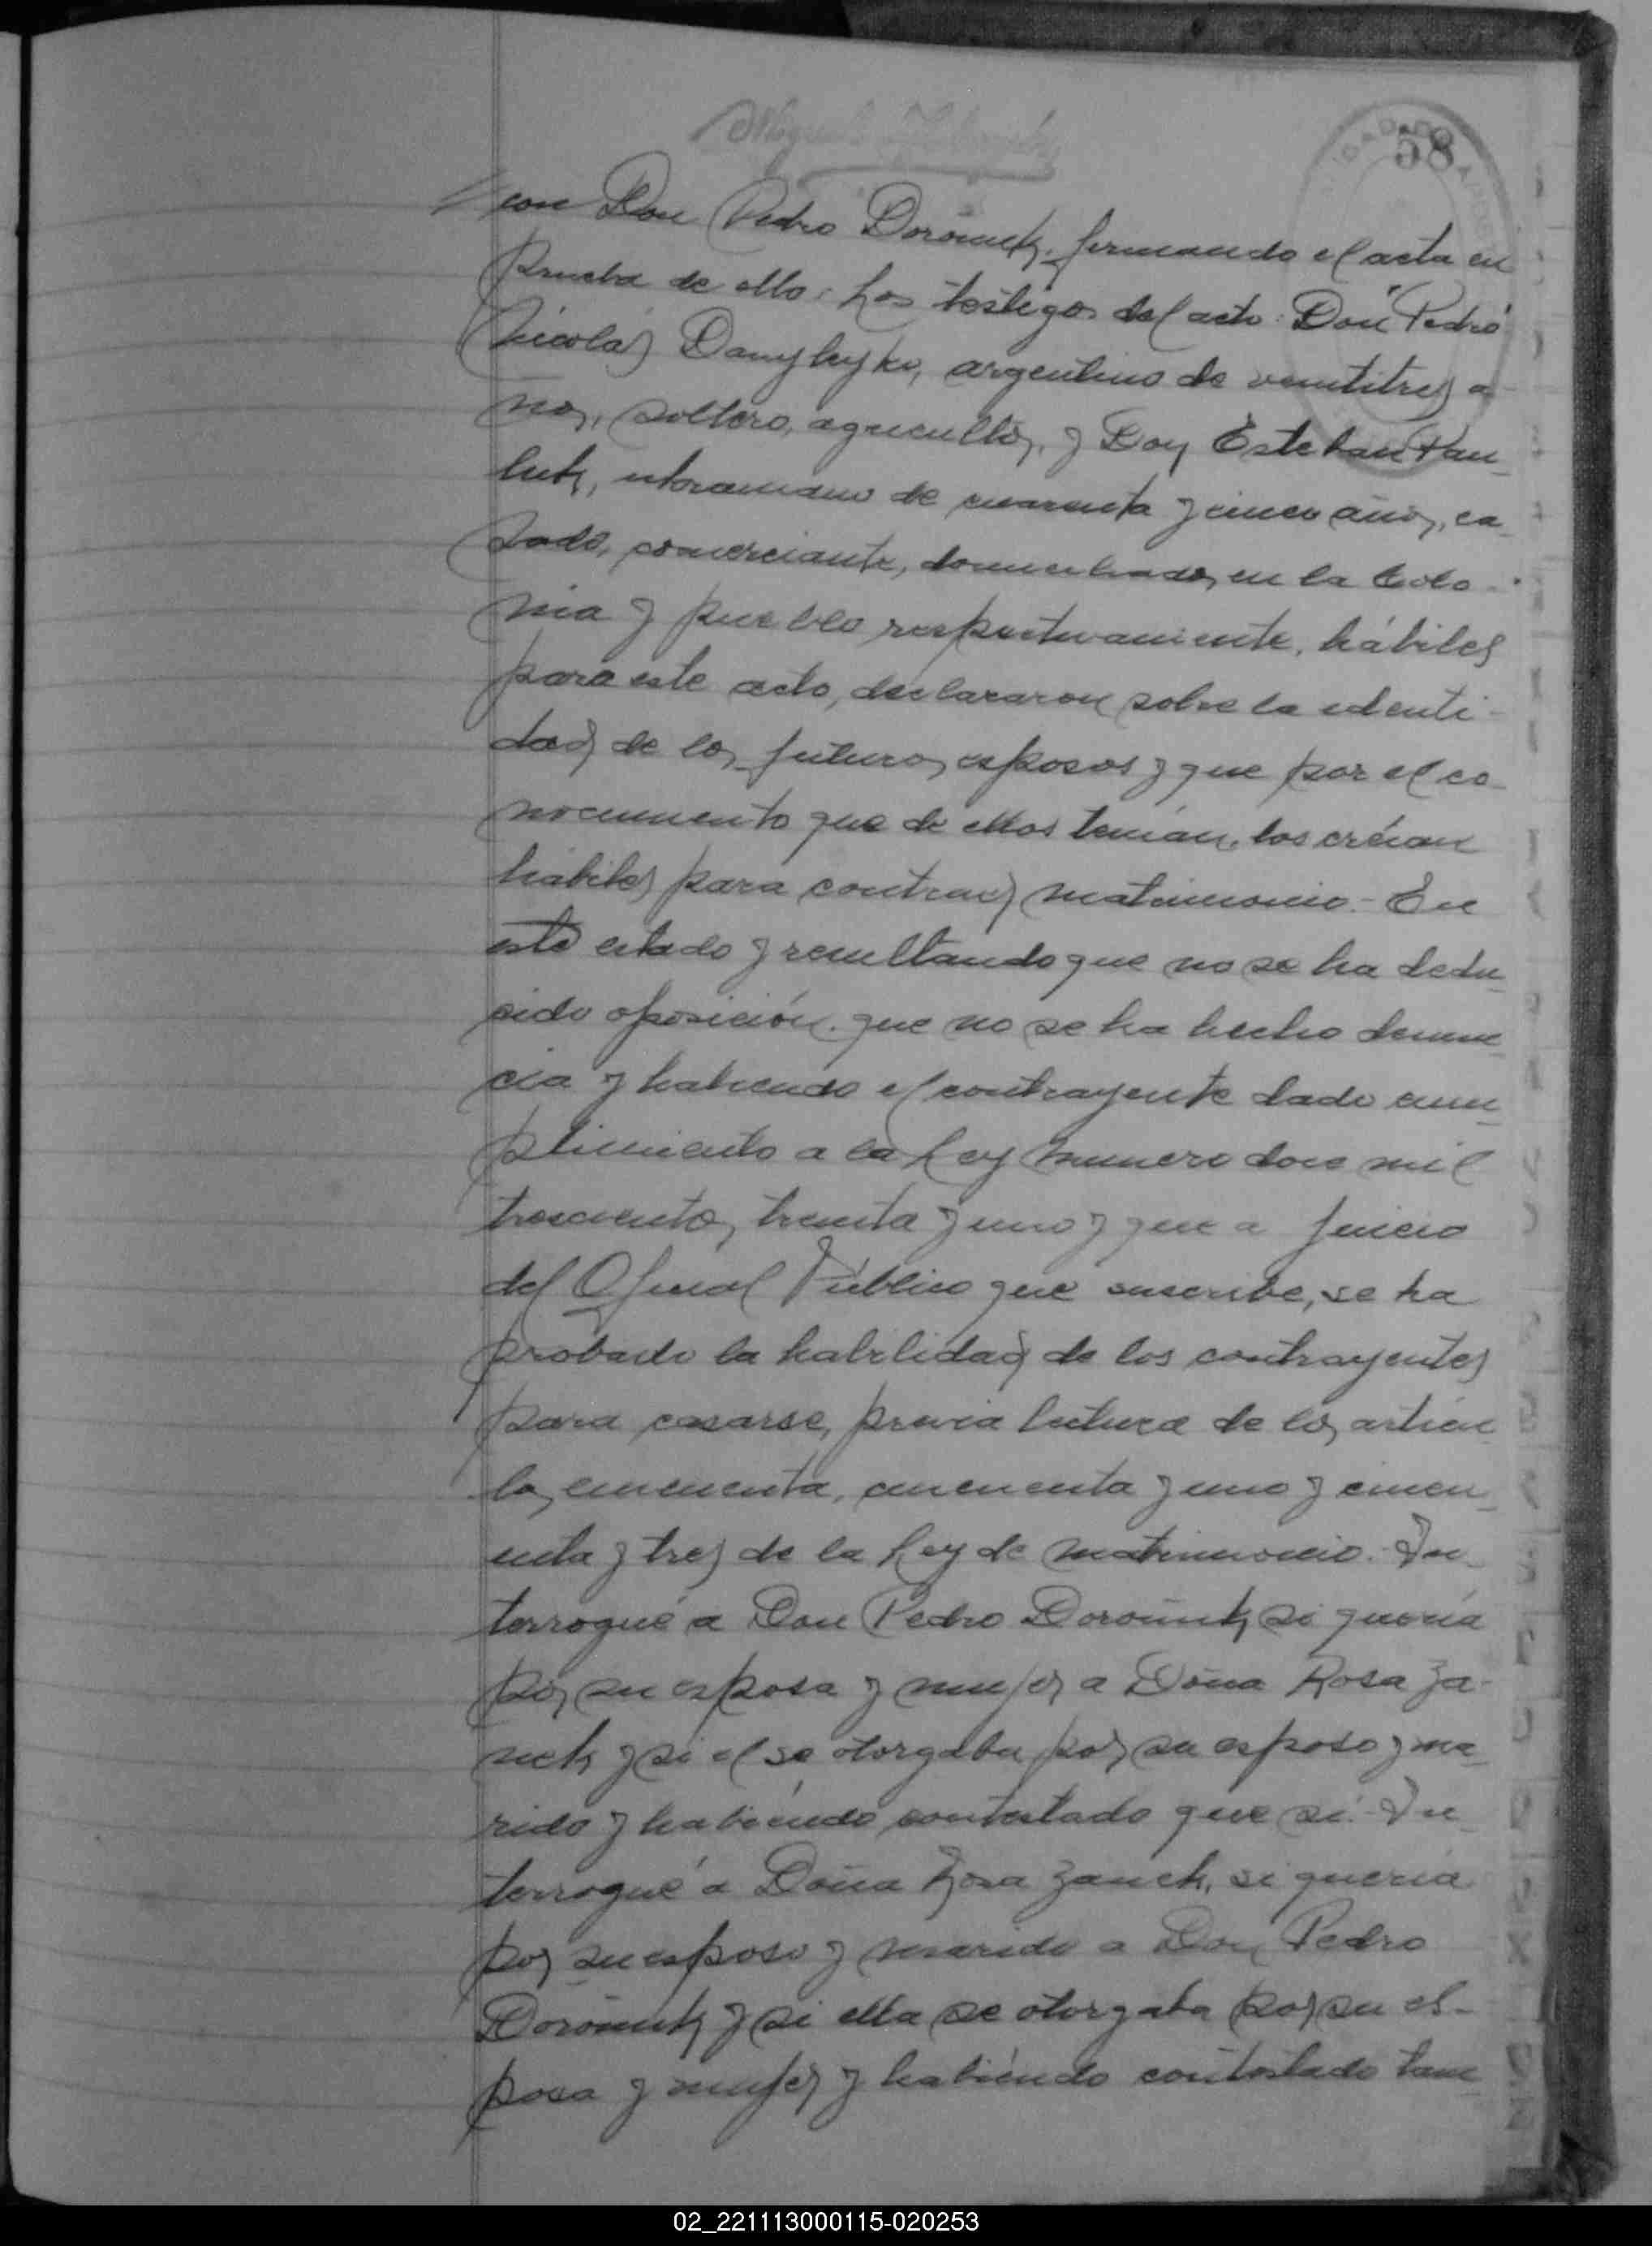 58
con Don Pedro Doroñuk, firmando el acta en
prueba de ello: Los testigos del acto: Don Pedro
Nicolás Danylyyko, argentino de veintitres a-
ños, soltero, agricultor, y Don Esteban Pau-
luk, ukraniano de cuarenta y cinco años, ca-
sado, comerciante, domiciliados en la Colo-
nia y pueblo respectivamente, hábiles
para este acto, declararon sobre la identi-
dad de los futuros esposos y que por el co-
nocimiento que de ellos tenían, los créian
hábiles para contraer matrimonio.- En
este estado y resultando que no se ha dedu-
cido oposición, que no se ha hecho denun-
cia y habiendo el contrayente dado cum-
plimiento a la Ley número doce mil
trescientos treinta y uno y que a juicio
del Oficial Público que suscribe, se ha
probado la habilidad de los contrayentes
para casarse, previa lectura de los artícu-
los cincuenta, cincuenta y uno y cincu-
enta y tres de la Ley de matrimonio.- In-
terrogué a Don Pedro Doroñuk, si quería
por su esposa y mujer a Doña Rosa Za-
nek y si el se otorgaba por su esposo y ma-
rido y habiéndo contestado que sí.- In-
terrogué a Doña Rosa Zanek, si quería
por su esposo y marido a Don Pedro
Doroñuk y si ella se otorgaba por su es-
posa y mujer y habiéndo contestado tam-
02_221113000115-020253